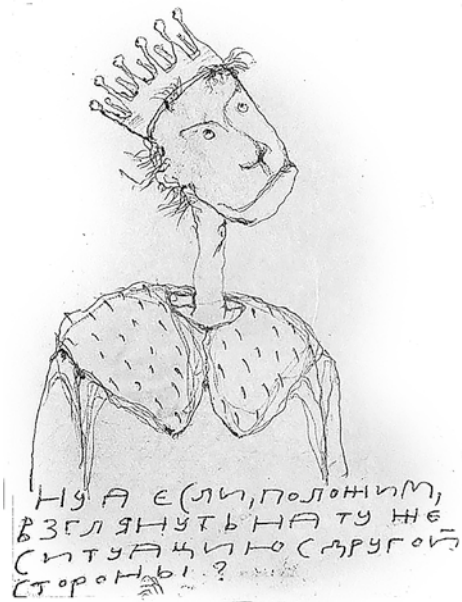 НУ А ЕСЛИ, ПОЛОЖИМ,
ВЗГЛЯНУТЬ НА ТУ ЖЕ
СИТУАЦИЮ С ДРУГОЙ
СТОРОНЫ?